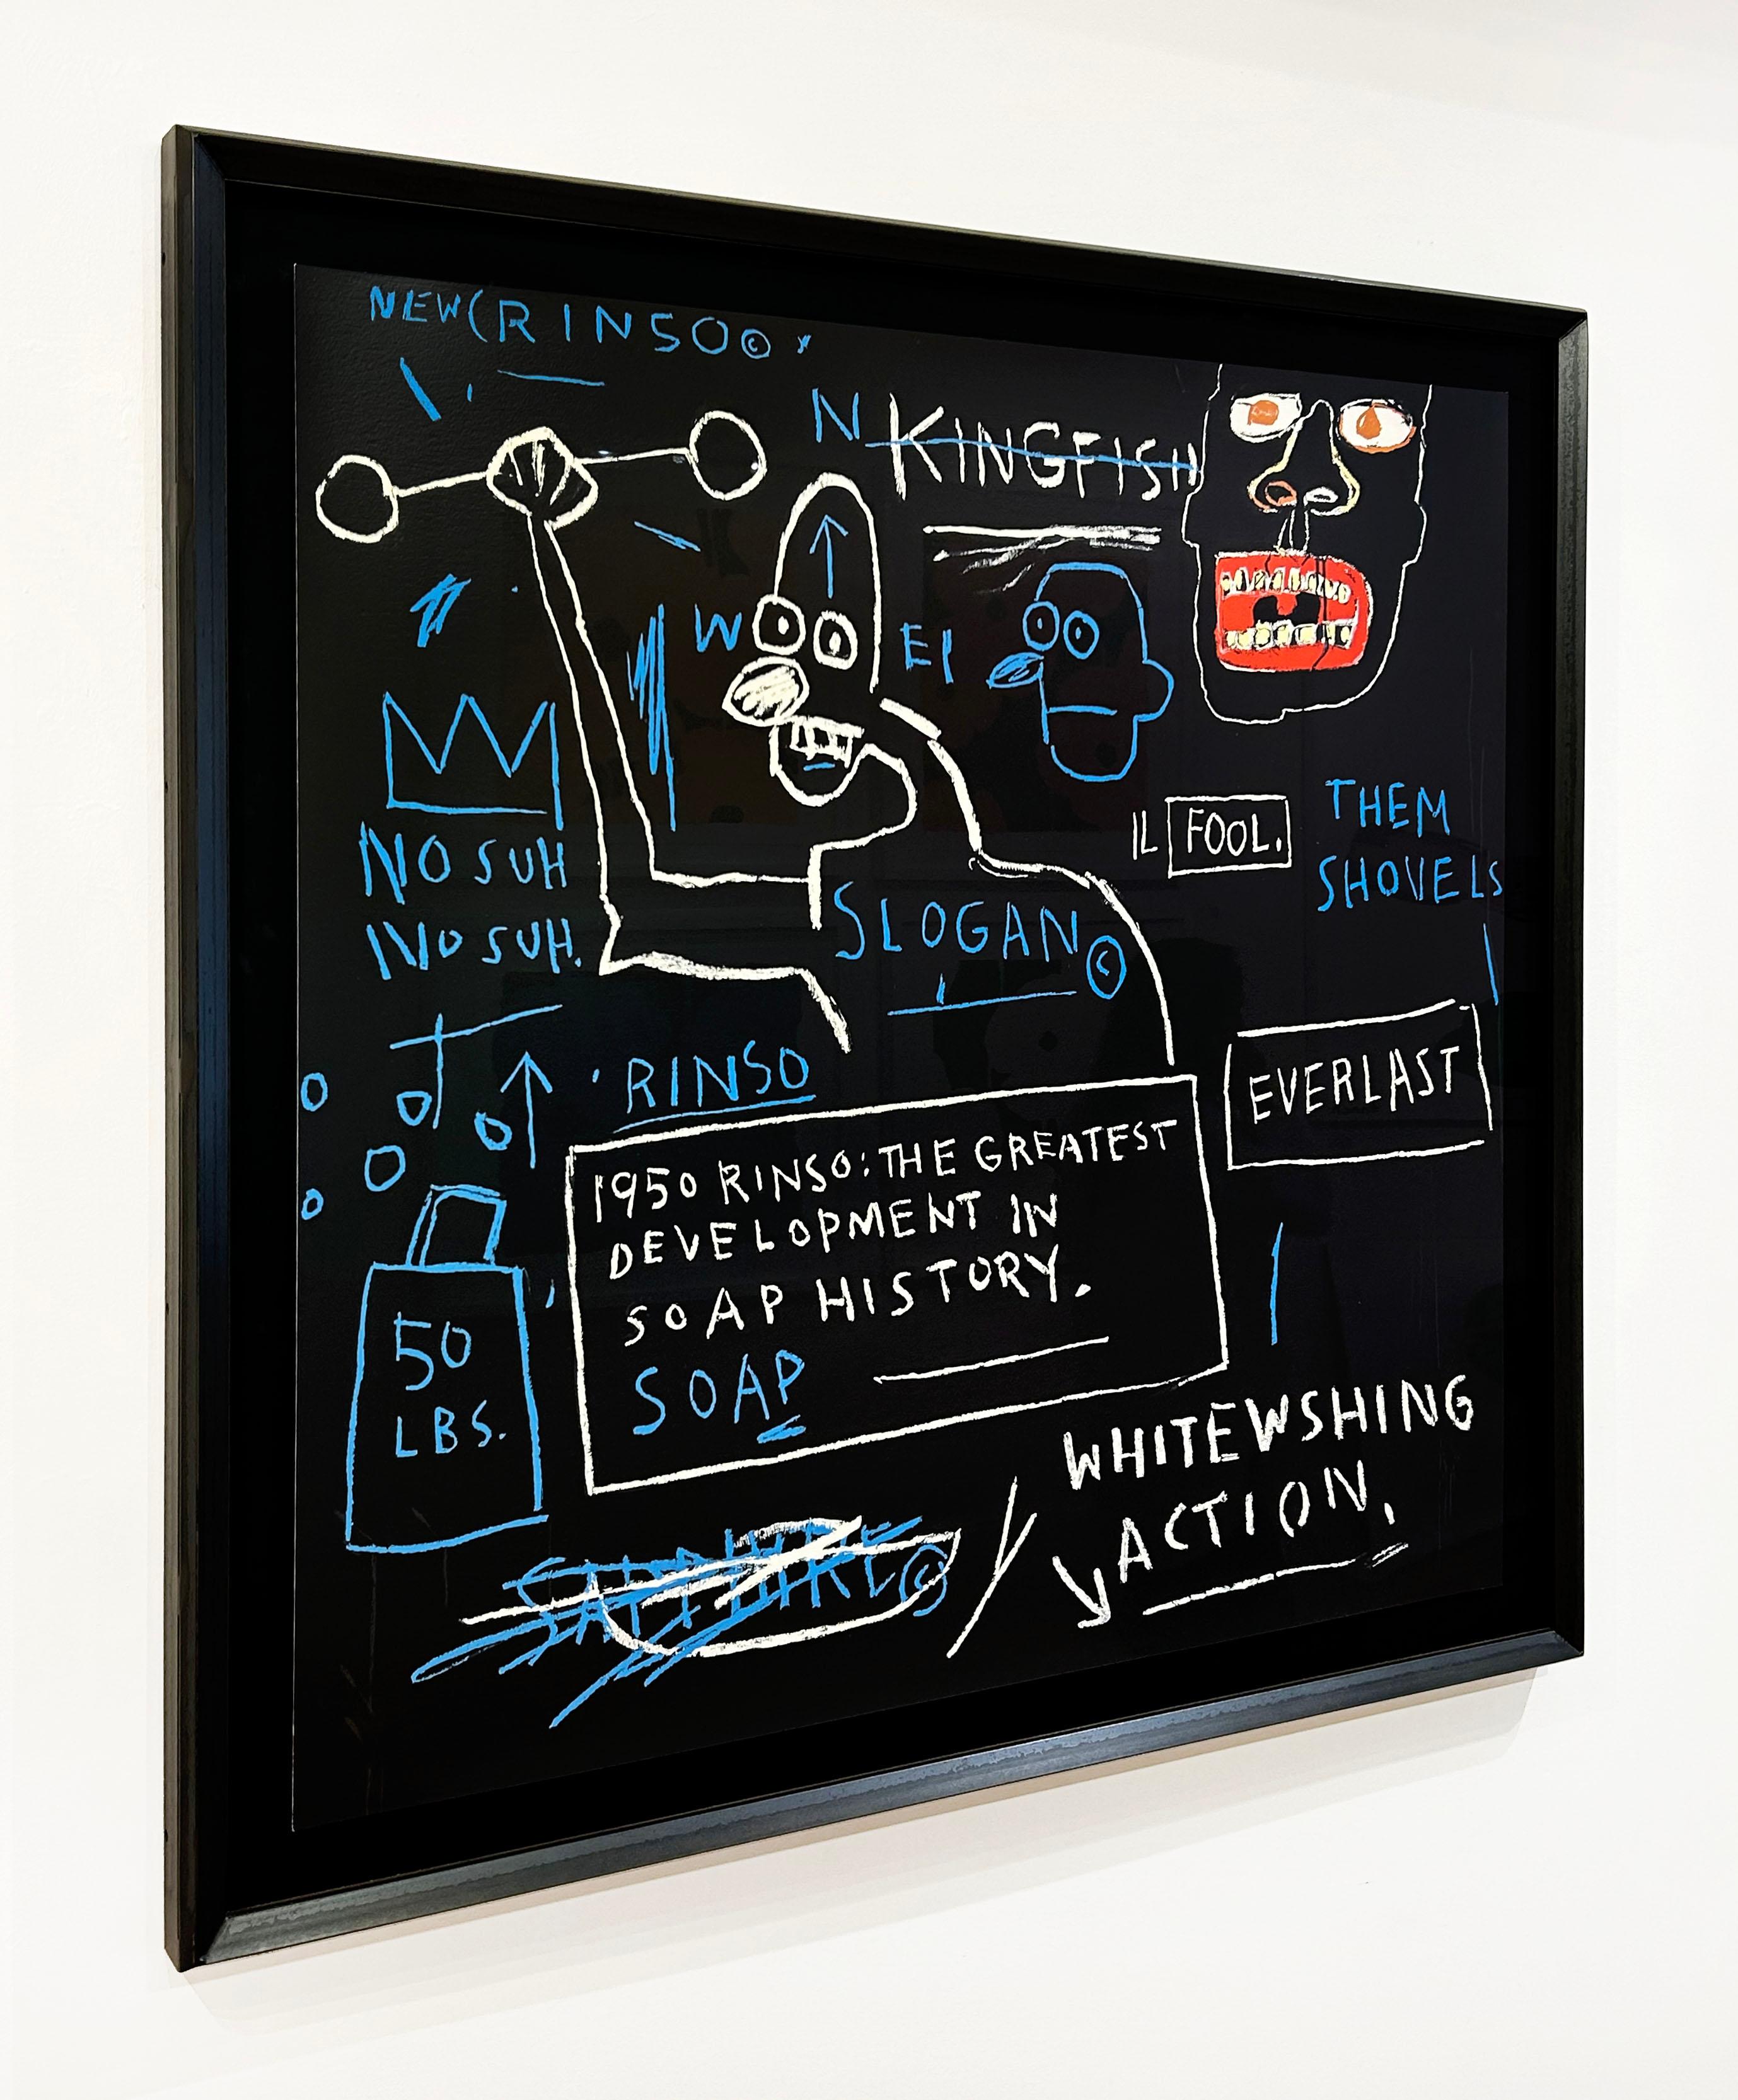 NEW(RINSO©
N
KINGFISH
W
E
IL FOOL.
THEM
SHOVELS
NO SUH
NO SUH.
SLOGAN©
RINSO
EVERLAST
1950 RINSO: THE GREATEST
DEVELOPMENT IN
SOAP HISTORY.
SOAP
50
LBS.
WHITEWSHING
ACTION.
SAPPHIRE©